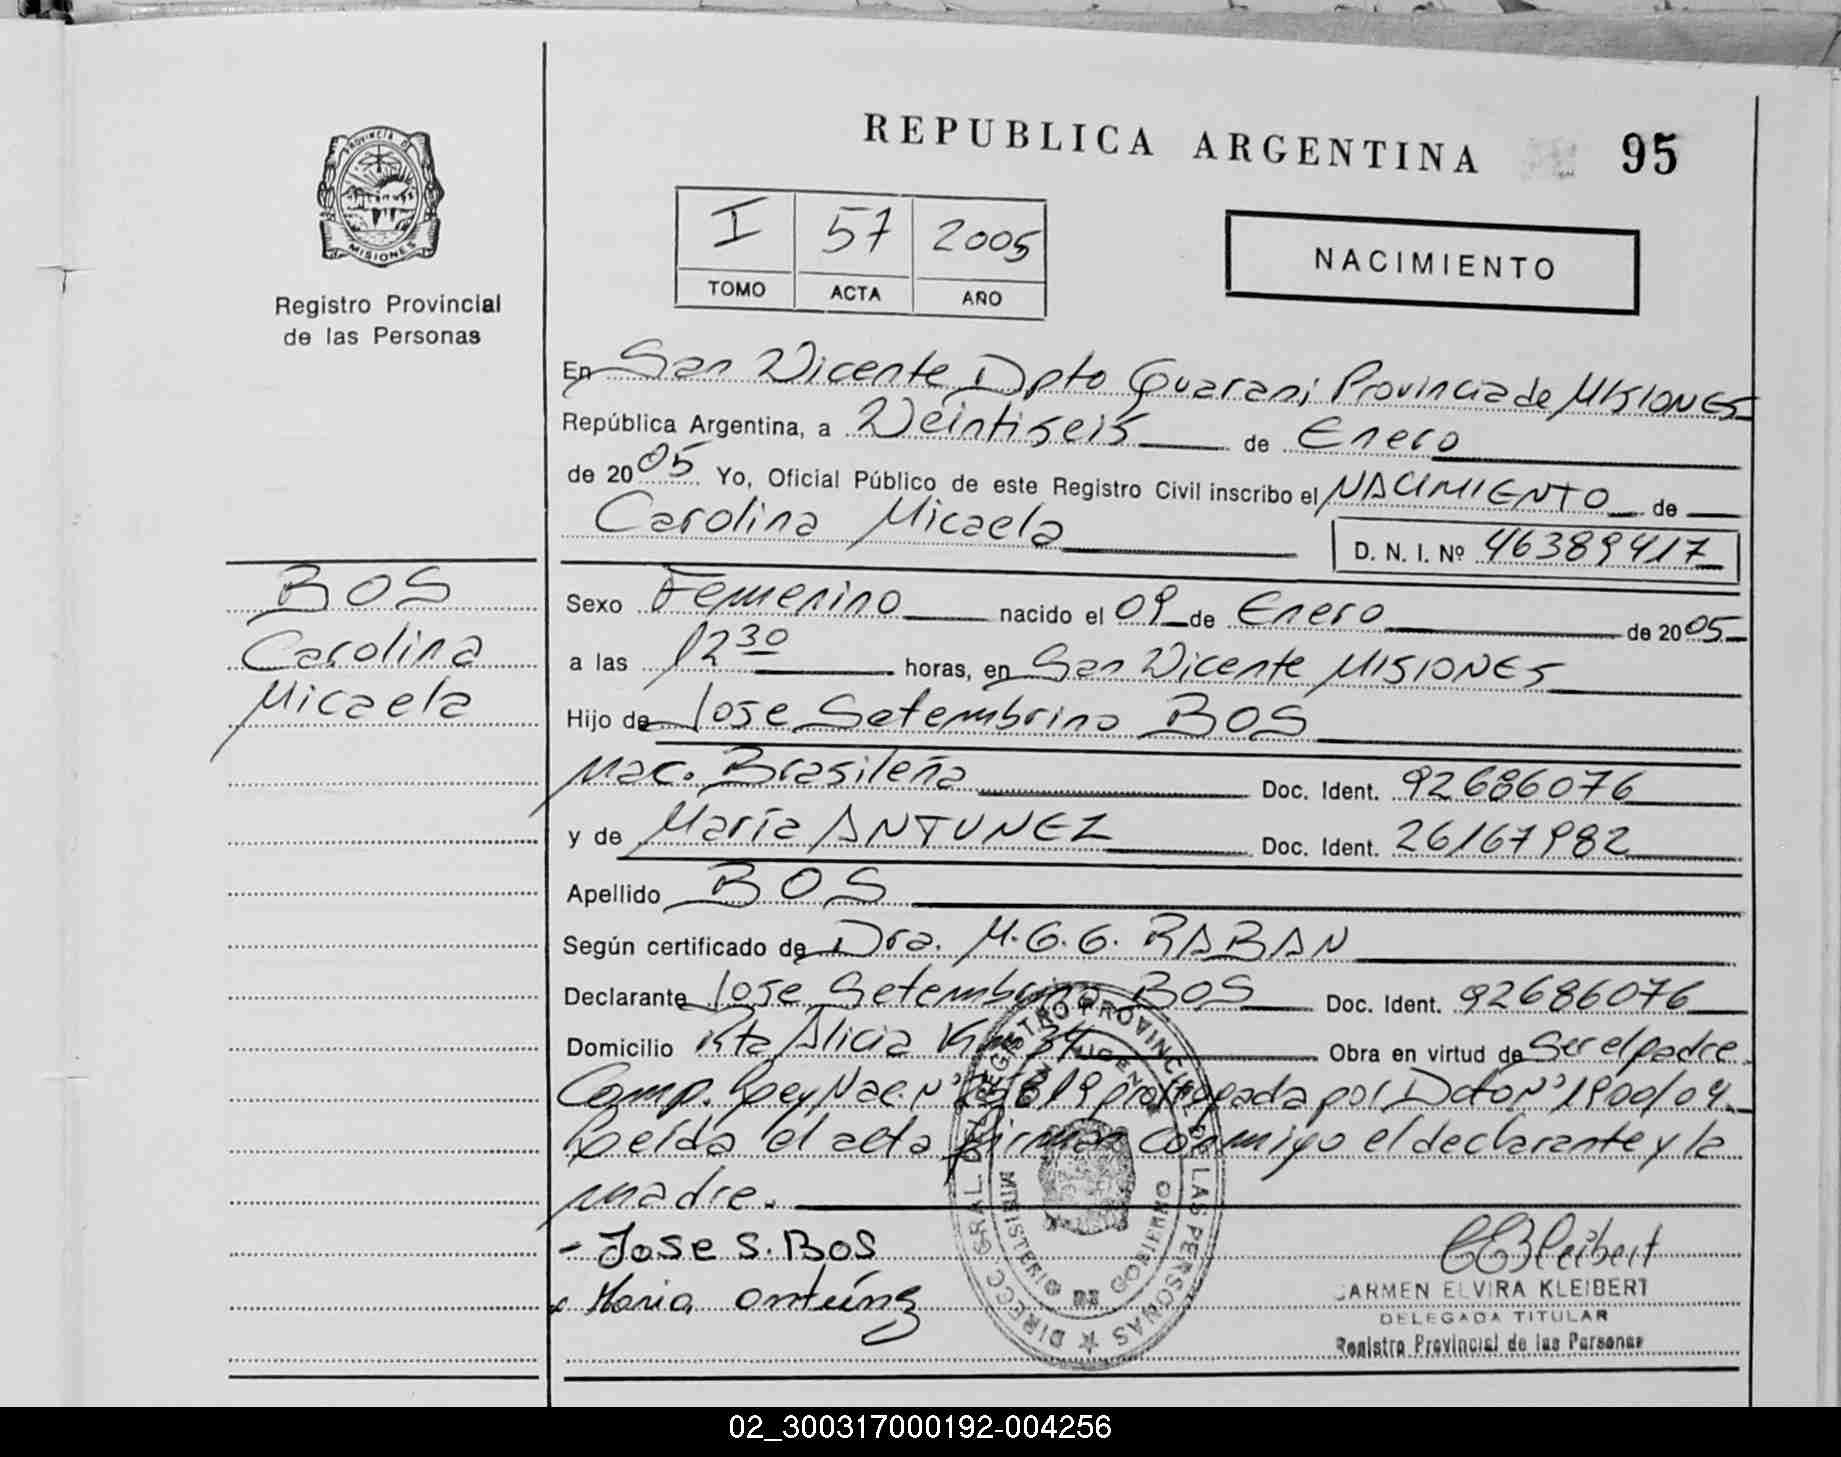 REPUBLICA ARGENTINA 95
PROVINCIA DE
MISIONES
Registro Provincial
de las Personas
I 57 2005
TOMO ACTA AÑO
NACIMIENTO
En San Vicente Dpto Guarani Provincia de MISIONES
República Argentina, a Veintiseis de Enero
de 2005 Yo, Oficial Público de este Registro Civil inscribo el NACIMIENTO de
Carolina Micaela D. N. I. Nº 46389417
BOS
Carolina
Micaela
Sexo Femenino nacido el 09 de Enero de 2005
a las 12 30 horas, en San Vicente MISIONES
Hijo de Jose Setembrino BOS
Nac. Brasileña Doc. Ident. 92686076
y de María ANTUNEZ Doc. Ident. 26167982
Apellido BOS
Según certificado de Dra. M. G. G. RABAN
Declarante Jose Setembrino BOS Doc. Ident. 92686076
Domicilio Rta Alicia Km 34 Obra en virtud de Ser el padre.
Comp. Ley Nac. Nº 25819 prorrogada por Dcto Nº 1900/04.
Leída el acta firman conmigo el declarante y la
madre.
- Jose S. Bos
Maria
CEKleibert
CARMEN ELVIRA KLEIBERT
DELEGADA TITULAR
Registro Provincial de las Personas
DIRECC. GRAL. DEL REGISTRO PROVINCIAL DE LAS PERSONAS
MINISTERIO DE GOBIERNO
02_300317000192-004256